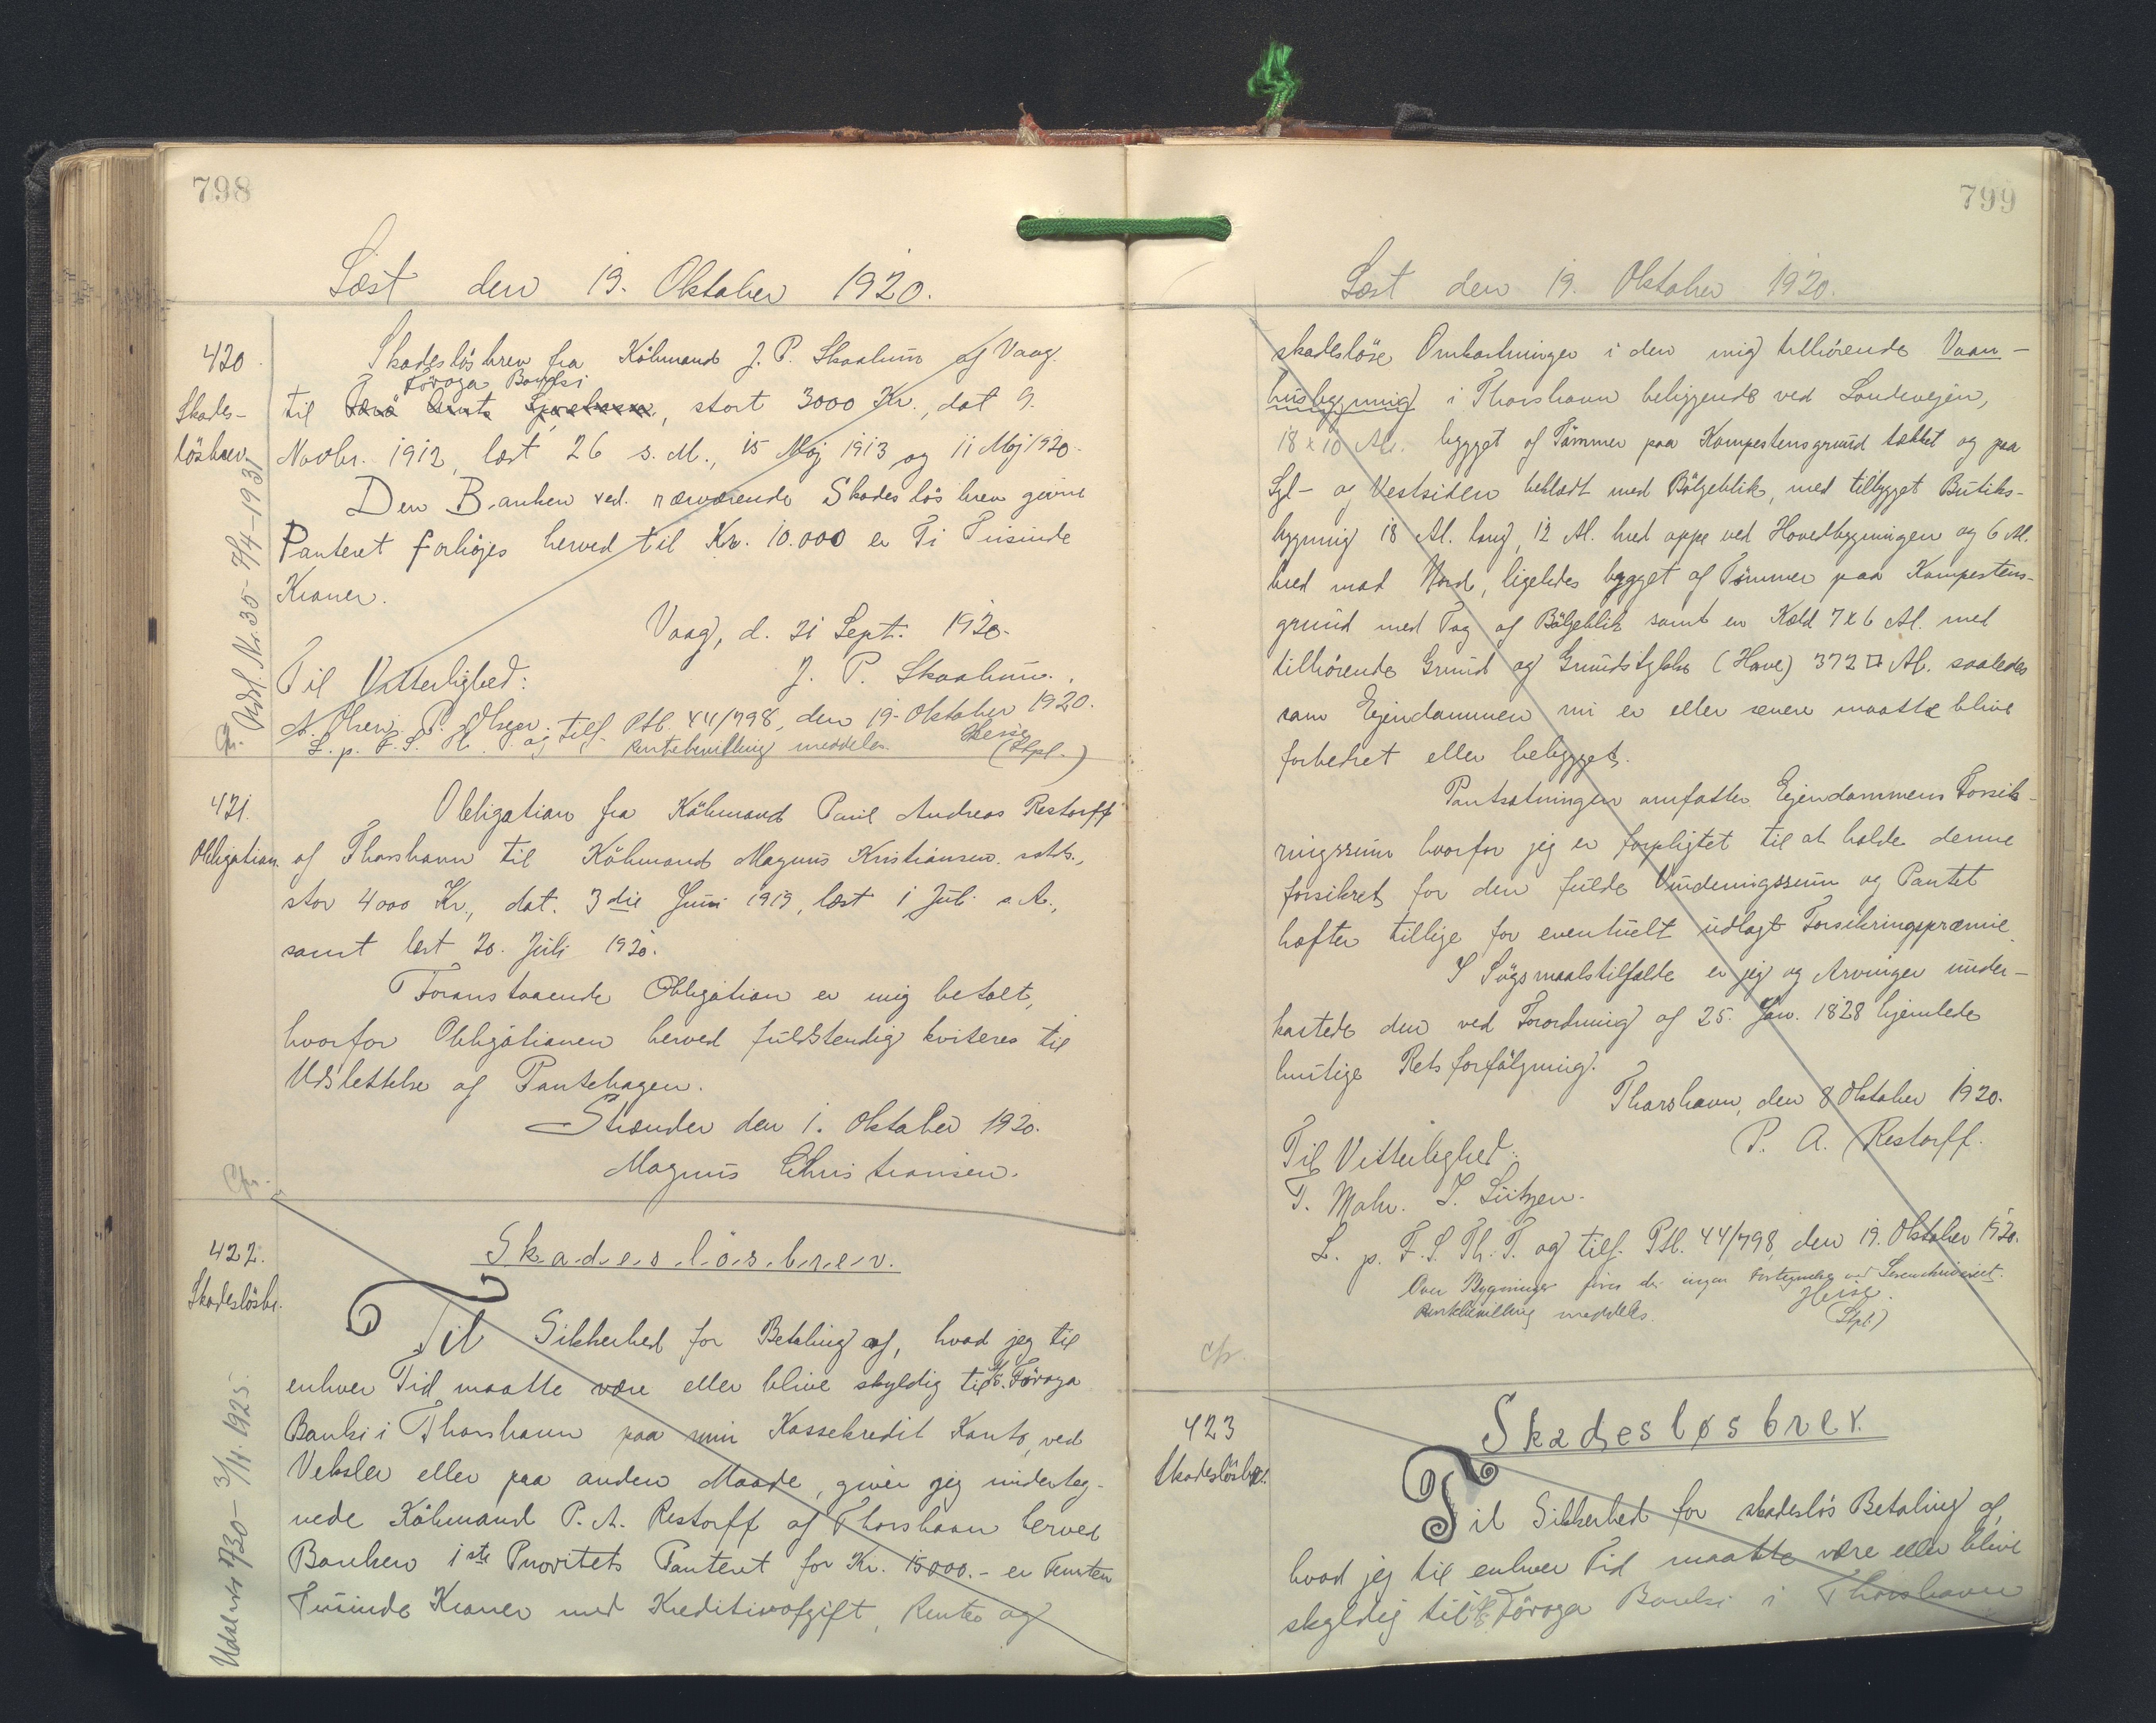 798
Læst den 19. Oktober 1920.
420.
Skades-
lösbrev
Udsl. Nr. 35 - 7/4-1931
Cfr.
Skadeslösbrev fra Köbmand J. P. Skaalum af Vaag
Föroya Banki
til Færö Amts Sparekasse, stort 3000 Kr., dat 9.
Novbr. 1912, læst 26 s. M., 15 Maj 1913 og 11 Maj 1920.
Den Banken ved nærværende Skadeslösbrev givne
Panteret forhøjes herved til Kr. 10.000 er Ti Tusinde
Kroner.
Vaag, d. 21 Sept. 1920.
Til Vitterlighed:
J. P. Skaalum.
A. Olsen P. Olsen.
L. p. F. S. Th. T. og tilf. Ptb. 44/798, den 19. Oktober 1920.
Rentebevilling meddeles.
Heise
(Stpl.)
421.
Obligation.
Cfr.
Obligation fra Köbmand Paul Andreas Restorff
af Thorshavn til Köbmand Magnus Kristiansen sstds.,
stor 4000 Kr., dat. 3die Juni 1919, læst 1 Juli s. A.,
samt læst 20. Juli 1920.
Foranstaaende Obligation er mig betalt,
hvorfor Obligationen herved fuldstendig kviteres til
Udslettelse af Pantebogen.
Strænder den 1. Oktober 1920.
Magnus Christiansen.
422.
Skadeslösbr.
Udslettet 730 - 3/11. 1925.
Skadeslösbrev.
Til Sikkerhed for Betaling af, hvad jeg til
enhver Tid maatte være eller blive skyldig til A/S. Föroya
Banki i Thorshavn paa min Kassekredit Konto, ved
Veksler eller paa anden Maade, giver jeg underteg-
nede Köbmand P. A. Restorff af Thorshavn herved
Banken 1ste Prioritets Panteret for Kr. 15000.- er Femten
Tusinde Kroner med Kreditivafgift, Renter og
799
Læst den 19. Oktober 1920.
skadeslöse Omkostninger i den mig tilhörende Vaan-
husbygning i Thorshavn beliggende ved Landevejen,
18 x 10 Al. bygget af Tömmer paa Kampestensgrund tækket og paa
Syd- og Vestsiden beklædt med Bölgeblik, med tilbygget Butiks-
bygning 18 Al. lang, 12 Al. bred oppe ved Hovedbygningen og 6 Al.
bred mod Nord, ligeledes bygget af Tömmer paa Kampestens-
grund med Tag af Bölgeblik samt en Kæld 7 x 6 Al. med
tilhörende Grund og Grundstykke (Have) 372 □ Al. saaledes
som Ejendommen nu er eller senere maatte blive
forbedret eller bebygget.
Pantsætningen omfatter Ejendommens Forsik-
ringssum hvorfor jeg er forpligtet til at holde denne
forsikret for den fulde Vurderingssum og Pantet
hæfter tillige for eventuelt udlagt Forsikringspræmie.
I Sögsmaalstilfælde er jeg og Arvinger under-
kastede den ved Forordning af 25. Jan. 1828 hjemlede
hurtige Retsforfölgning.
Thorshavn, den 8 Oktober 1920.
P. A. Restorff.
Til Vitterlighed:
T. Mohr. I. Lützen.
L. p. F. S. Th. T. og tilf. Ptb. 44/798, den 19. Oktober 1920.
Over Bygninger føres der ingen Fortegnelse ved Sorenskriveriet.
Rentebevilling meddeles.
Heise.
(Stpl.)
Cfr.
423
Skadeslösbrev.
Skadesløsbrev.
Til Sikkerhed for skadeslös Betaling af,
hvad jeg til enhver Tid maatte være eller blive
skyldig til A/S Föroya Banki i Thorshavn